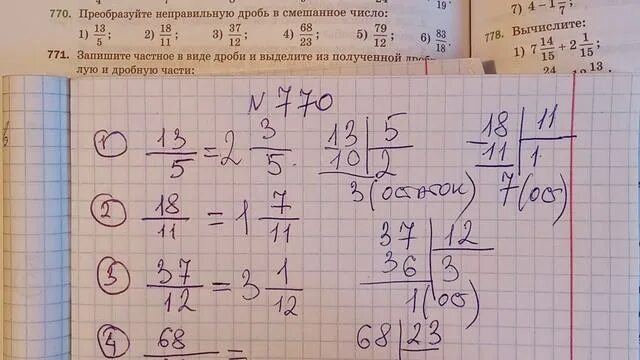 770. Преобразуйте неправильную дробь в смешанное число:
1) 13/5; 2) 18/11; 3) 37/12; 4) 68/23; 5) 79/12; 6) 83/18.
771. Запишите частное в виде дроби и выделите из полученной
лую и дробную части:
19
7) 4 − 1 /7;
778. Вычислите:
1) 7 14/15 + 2 1/15;
24 13
N 770
1 13/5 = 2 3/5.
13 | 5
10 | 2
3 (остаток)
18 | 11
11 | 1
7 (ост)
2 18/11 = 1 7/11
3 37/12 = 3 1/12
37 | 12
36 | 3
1 (ост)
4 68 =
68 | 23